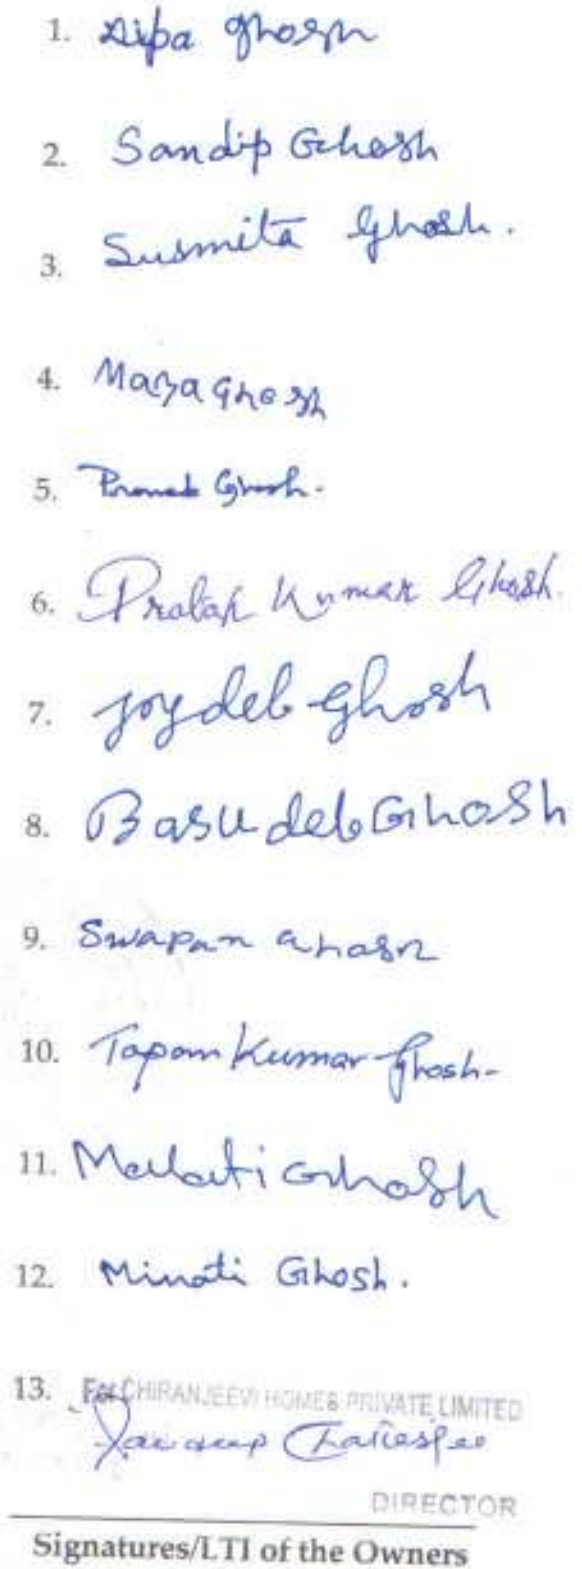 1. Dipa Ghosh
2. Sandip Ghosh
3. Susmita Ghosh.
4. Maya Ghosh
5. Pranab Ghosh.
6. Pratap Kumar Ghosh.
7. Joydeb Ghosh
8. Basudeb Ghosh
9. Swapan Ghosh
10. Tapan Kumar Ghosh-
11. Malati Ghosh
12. Minati Ghosh.
13. For CHIRANJEEVI HOMES PRIVATE LIMITED
Chatterjee
DIRECTOR
Signatures/LTI of the Owners